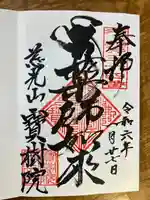 奉拝
令和六年
一月廿七日
薬師如来
慈光山
寳樹院